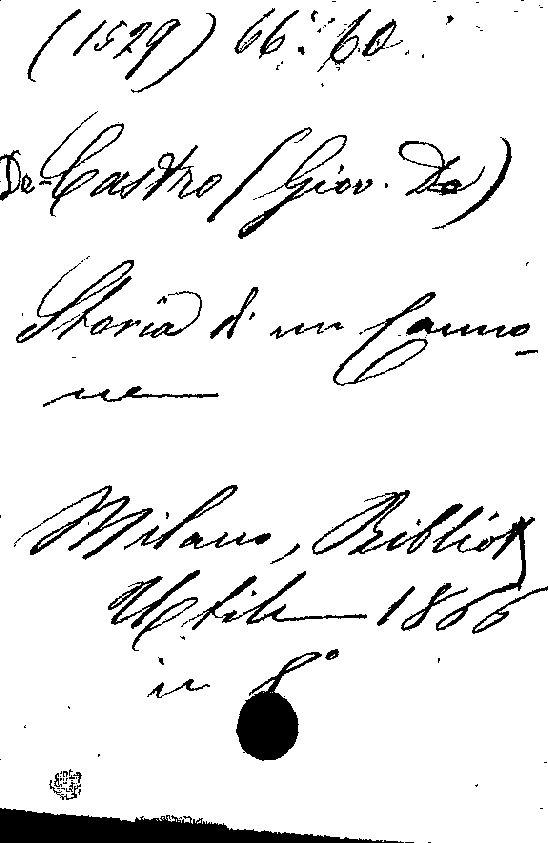 (1529) 66. 60.
De-Castro (Giov. De)
Storia di un Canno-
ne
Milano, Bibliot.
Utile 1866
in 8°